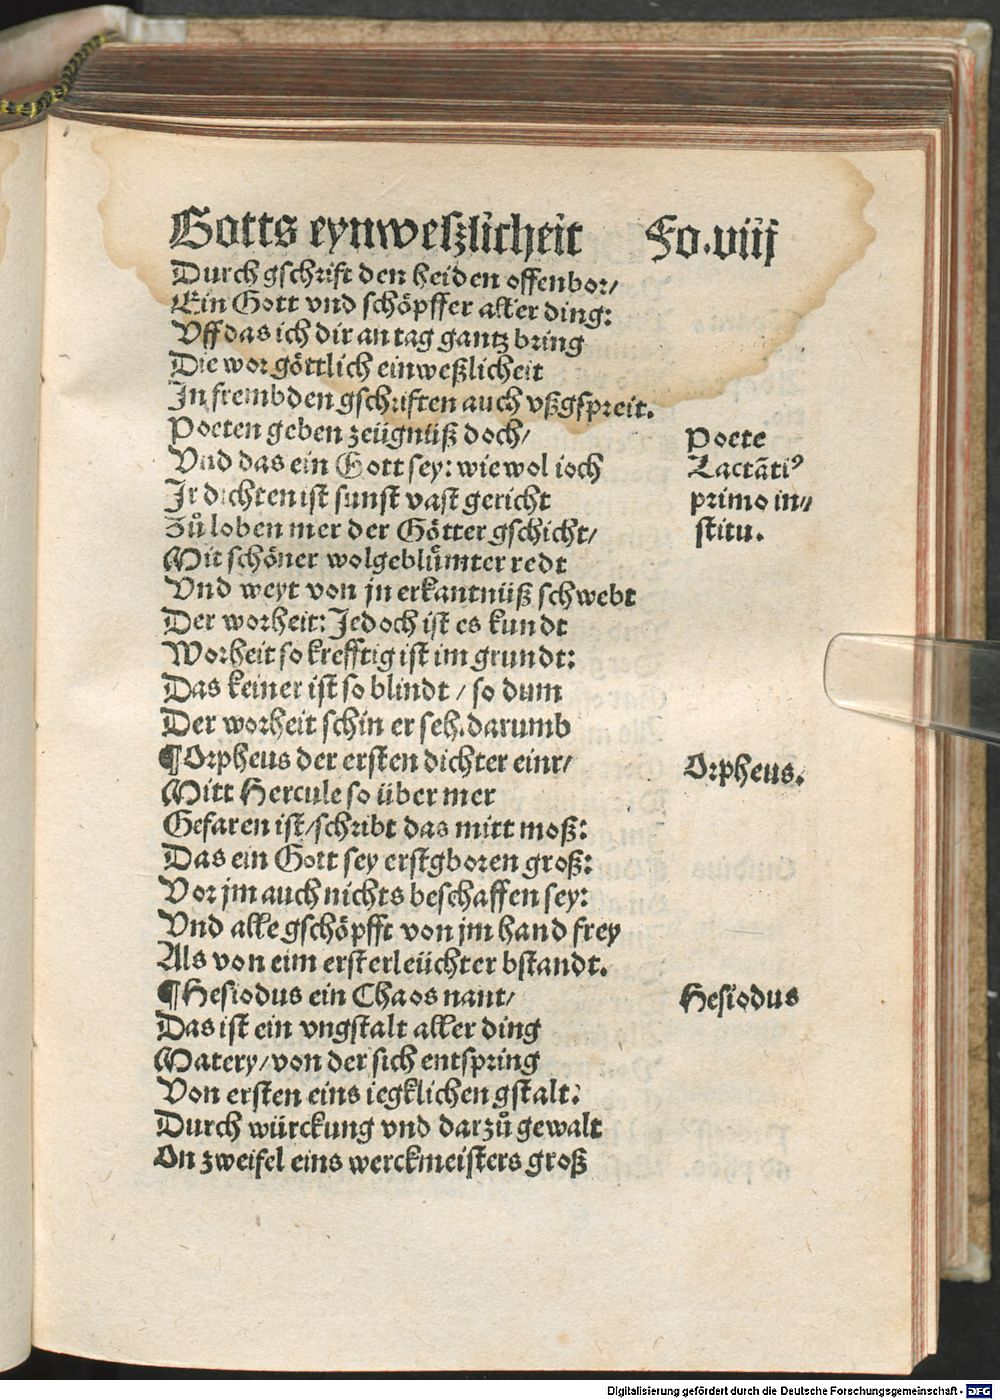 Gotts eynweſzlicheit Fo.viij
Durch gſchrift den heiden offenbor/
Ein Gott vnd ſchöpffer aller ding:
Vff das ich dir an tag gantz bring
Die wor göttlich einweßlicheit
In frembden gſchriften auch vßgſpreit.
Poeten geben zeügnüß doch/
Vnd das ein Gott ſey: wie wol ioch
Ir dichten iſt ſunſt vaſt gericht
Zů loben mer der Götter gſchicht/
Mit ſchöner wolgeblůmter redt
Vnd weyt von jn erkantnüß ſchwebt
Der worheit: Jedoch iſt es kundt
Worheit ſo krefftig iſt im grundt:
Das keiner iſt ſo blindt / ſo dum
Der worheit ſchin er ſeh. darumb
¶Orpheus der erſten dichter einr/
Mitt Hercule ſo über mer
Gefaren iſt/ſchribt das mitt moß:
Das ein Gott ſey erſtgboren groß:
Vor jm auch nichts beſchaffen ſey:
Vnd alle gſchöpfft von jm hand frey
Als von eim erſt erleüchter bſtandt.
¶Heſiodus ein Chaos nant/
Das iſt ein vngſtalt aller ding
Matery/von der ſich entſpring
Von erſten eins iegklichen gſtalt:
Durch würckung vnd darzů gewalt
On zweifel eins werckmeiſters groß
Poete
Lactātiꝰ
primo in⸗
ſtitu.
Orpheus.
Heſiodus
Digitalisierung gefördert durch die Deutsche Forschungsgemeinschaft - DFG